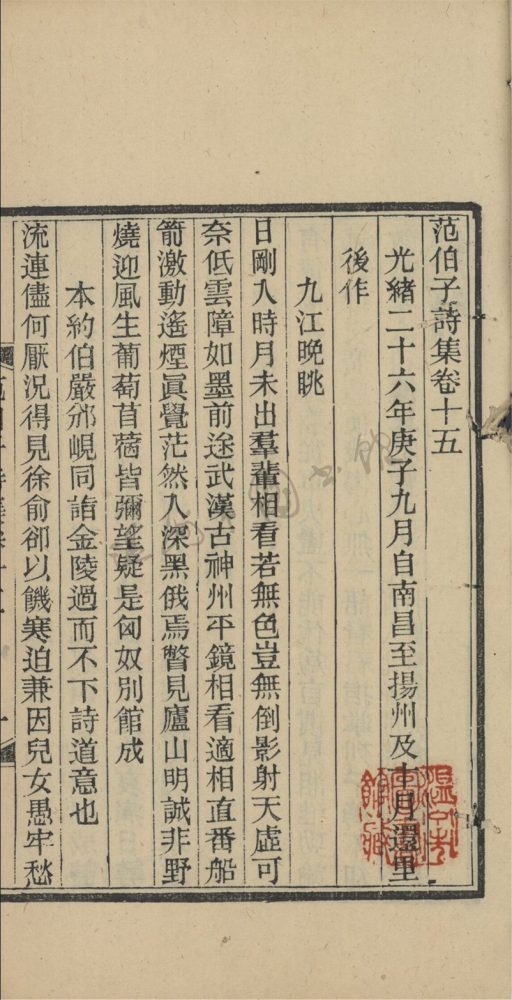 范伯子詩集卷十五
光緒二十六年庚子九月自南昌至揚州及十月還里
後作
九江晚眺
日剛入時月未出羣輩相看若無色豈無倒影射天虛可
奈低雲障如墨前途武漢古神州平鏡相看適相直番船
箭激動遙煙眞覺茫然入深黑俄焉瞥見廬山明誠非野
燒迎風生葡萄苜蓿皆彌望疑是匈奴別館成
本約伯嚴邠峴同詣金陵過而不下詩道意也
流連儘何厭況得見徐俞卻以饑寒迫兼因兒女愚牢愁